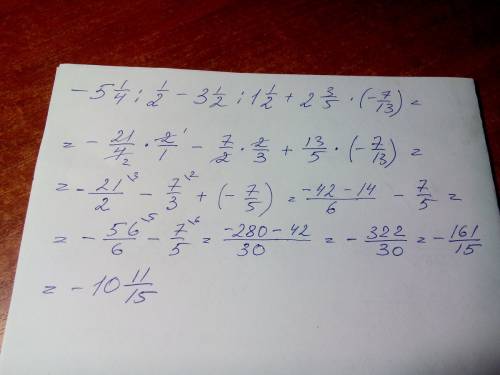 -5 1/4 : 1/2 - 3 1/2 : 1 1/2 + 2 3/5 · (-7/13) =
= - 21/4 2 · 2 1/1 - 7/2 · 2/3 + 13/5 · (-7/13) =
= - 21/2 \3 - 7/3 \2 + (-7/5) = (-42 - 14)/6 - 7/5 =
= - 56/6 \5 - 7/5 \6 = (-280 - 42)/30 = - 322/30 = - 161/15
= -10 11/15